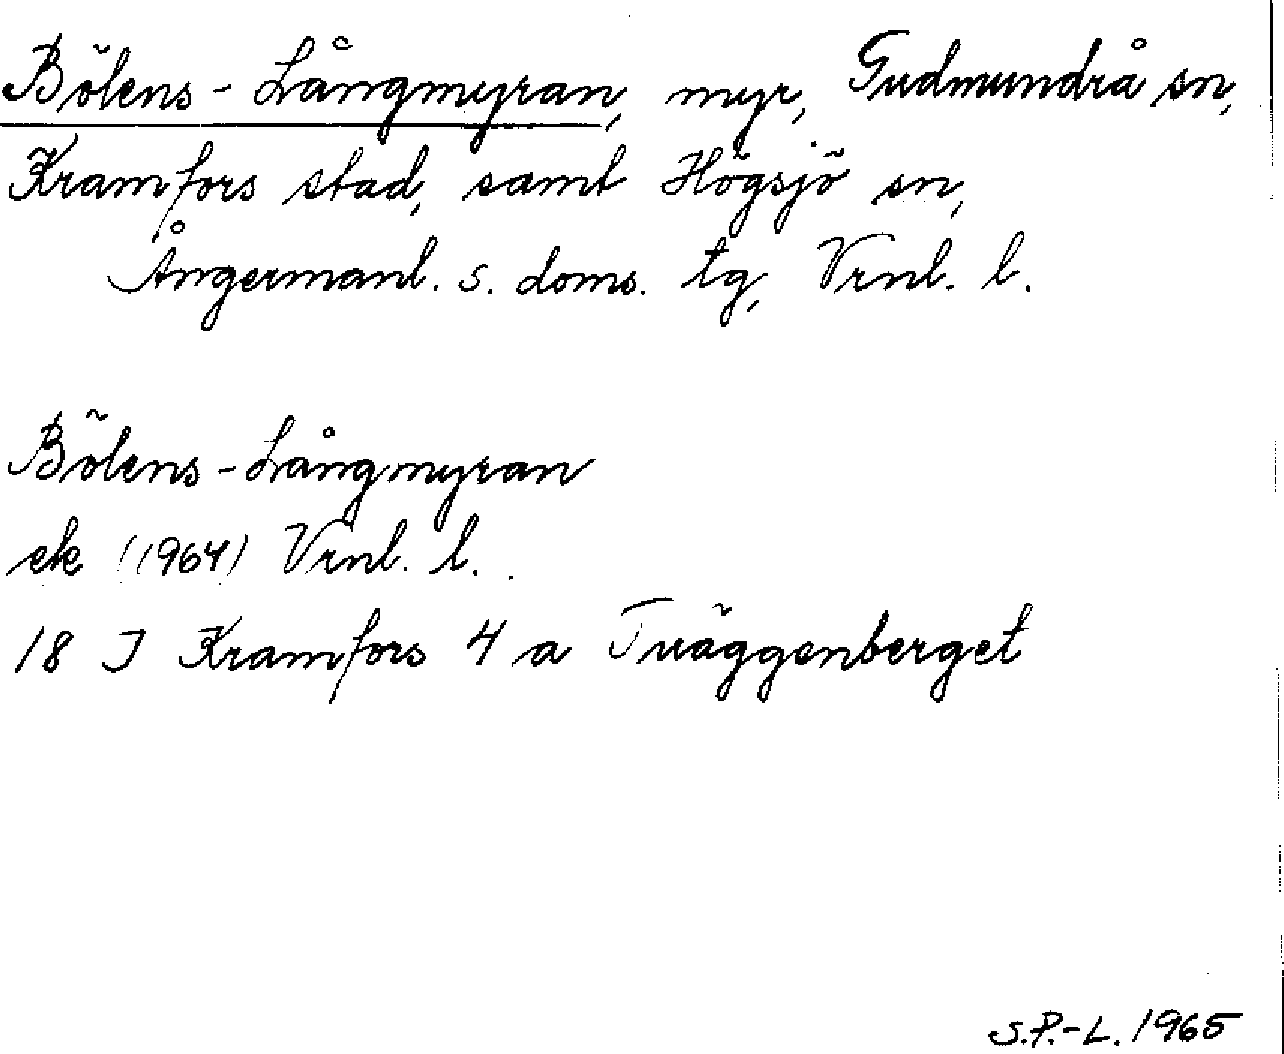 Bölens-Långmyran, myr, Gudmundrå sn,
Kramfors stad, samt Högsjö sn,
Ångermanl. s. doms. tg, Vrnl. l.
Bölens-Långmyran
ek (1964) Vrnl. l.
18 J Kramfors 4 a Tväggenberget
S.P.-L. 1965